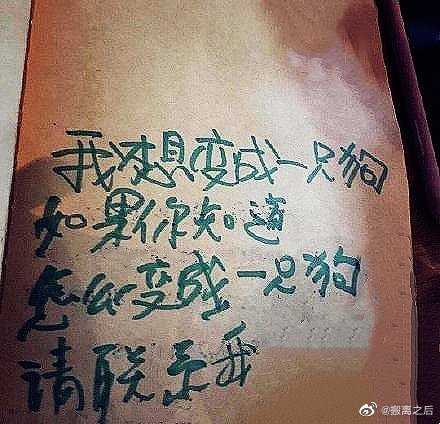 我想变成一只狗
如果你知道
怎么变成一只狗
请联系我
@搬离之后